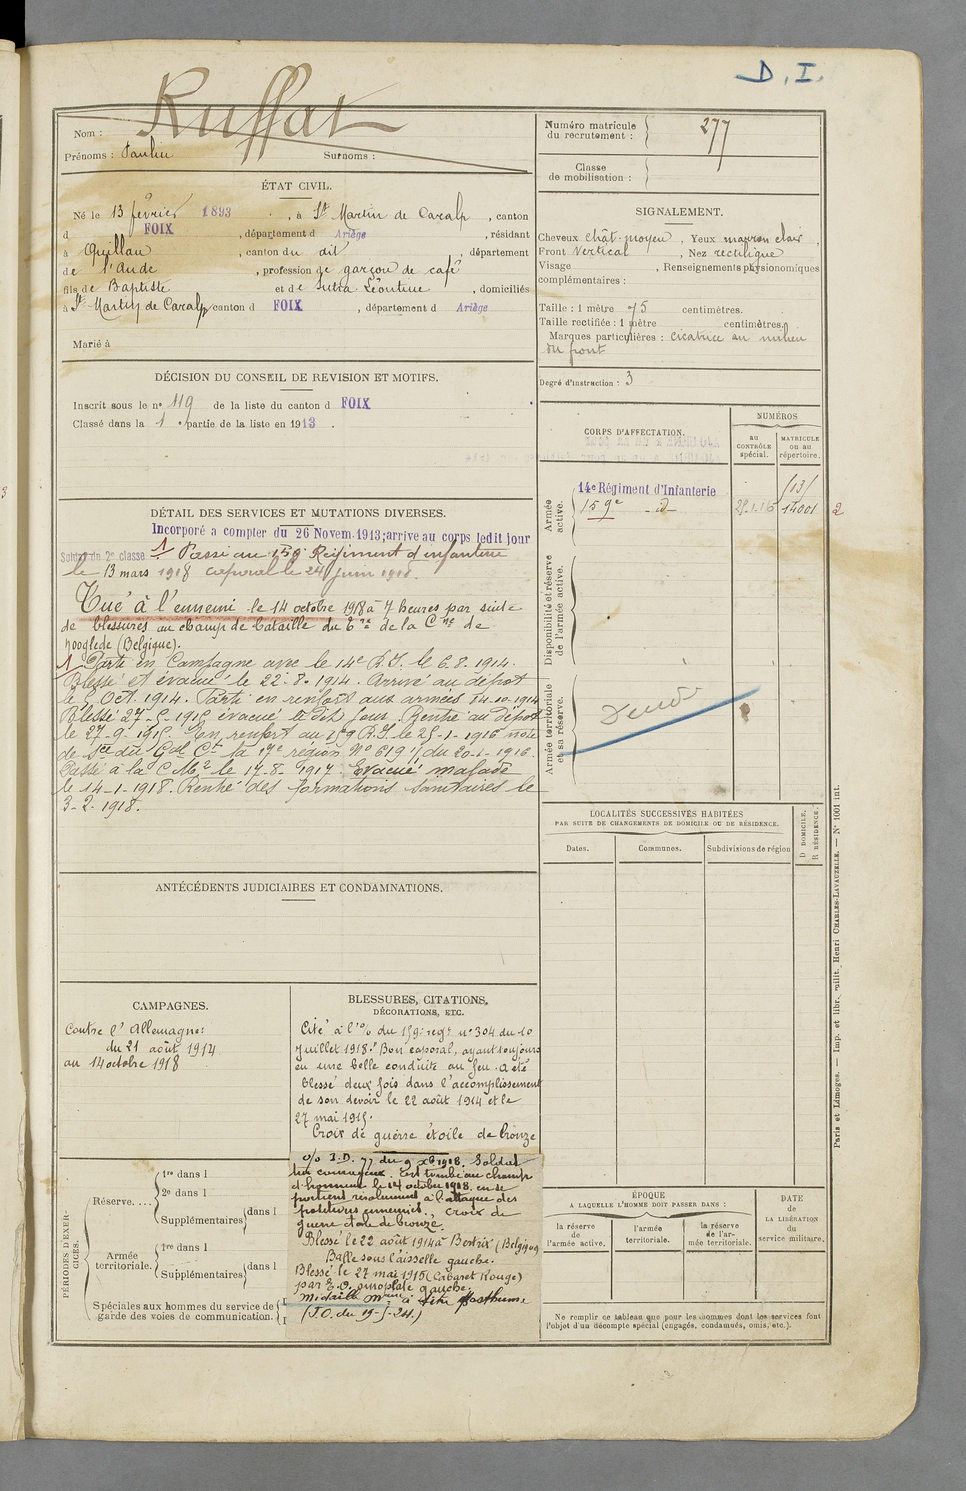 D. I.
Ruffat
Nom :
Prénoms : Paulin Surnoms :
Numéro matricule
du recrutement : 277
Classe
de mobilisation :
ÉTAT CIVIL.
Né le 13 février 1893, à St Martin de Caralp, canton
d FOIX, département d Ariège, résidant
à Quillan, canton du dit, département
de l'Aude, profession de garçon de café
fils de Baptiste et de Sutra Léontine, domiciliés
à St Martin de Caralp canton d FOIX, département d Ariège
Marié à
SIGNALEMENT.
Cheveux chât. moyen, Yeux marron clair,
Front Vertical, Nez rectiligne
Visage , Renseignements physionomiques
complémentaires :
Taille : 1 mètre 75 centimètres.
Taille rectifiée : 1 mètre centimètres.
Marques particulières : cicatrice au milieu
du front
Degré d'instruction : 3
DÉCISION DU CONSEIL DE REVISION ET MOTIFS.
Inscrit sous le no 119 de la liste du canton d FOIX
Classé dans la 1e partie de la liste en 1913.
CORPS D'AFFECTATION.
NUMÉROS
au
CONTRÔLE
spécial.
MATRICULE
ou au
répertoire.
Armée
active.
14e Régiment d'Infanterie
159e -d- 25.1.16 14001 2
Disponibilité et réserve
de l'armée active.
Armée territoriale
et sa réserve.
DÉTAIL DES SERVICES ET MUTATIONS DIVERSES.
Incorporé a compter du 26 Novem. 1913; arrive au corps ledit jour
Soldat de 2e classe. 1 Passé au 159e Régiment d'infanterie
le 13 mars 1918 caporal le 24 juin 1918.
Tué à l'ennemi le 14 octobre 1918 à 7 heures par suite
de blessures au champ de bataille du de la de
Hooglede (Belgique).
1 Parti en Campagne avec le 14e R.I. le 6.8.1914.
Blessé et évacué le 22.8.1914. Arrivé au dépôt
le 5 Oct. 1914. Parti en renfort aux armées 14-10-1914
Blessé 27-5-1915 évacué le dit jour. Rentré au dépôt
le 27-9-1915. En renfort au 159 R.I. le 25-1-1916 note
de du Gal Ct la 17e région No 619 du 20-1-1916.
Passé à la C M2 le 17-8-1917. Evacué malade
le 14-1-1918. Rentré des formations sanitaires le
3-2-1918.
LOCALITÉS SUCCESSIVES HABITÉES
PAR SUITE DE CHANGEMENTS DE DOMICILE OU DE RÉSIDENCE.
Dates.
Communes.
Subdivisions de région
D DOMICILE.
R RÉSIDENCE.
ANTÉCÉDENTS JUDICIAIRES ET CONDAMNATIONS.
CAMPAGNES.
Contre l'Allemagne:
du 21 août 1914
au 14 octobre 1918
BLESSURES, CITATIONS,
DÉCORATIONS, ETC.
Cité à l'% du 159e regt no 304 du 10
Juillet 1918: "Bon caporal, ayant toujours
eu une belle conduite au feu. a été
blessé deux fois dans l'accomplissement
de son devoir le 22 août 1914 et le
27 mai 1915.
Croix de guerre étoile de bronze
o/o I.D. 77 du 9 Xbre 1918. Soldat
très courageux. Est tombé au champ
d'honneur le 14 octobre 1918 en se
portant résolument à l'attaque des
positions ennemies., Croix de
guerre étoile de bronze.
Blessé le 22 août 1914 à Bertrix (Belgique)
Balle sous l'aisselle gauche.
Blessé le 27 mai 1915 (Cabaret Rouge)
par E.O. omoplate gauche.
Médaille mre à titre Posthume
(J.O. du 19-5-24.)
PÉRIODES D'EXERCICES.
Réserve....
1re dans l
2e dans l
Supplémentaires dans l
Armée
territoriale.
1re dans l
Supplémentaires dans l
Spéciales aux hommes du service de
garde des voies de communication.
ÉPOQUE
A LAQUELLE L'HOMME DOIT PASSER DANS :
la réserve
de
l'armée active.
l'armée
territoriale.
la réserve
de l'armée territoriale.
DATE
de
LA LIBÉRATION
du
service militaire.
Ne remplir ce tableau que pour les hommes dont les services font
l'objet d'un décompte spécial (engagés, condamnés, omis, etc.).
Paris et Limoges. — Imp. et libr. milit. Henri CHARLES-LAVAUZELLE. — No 1001 int.